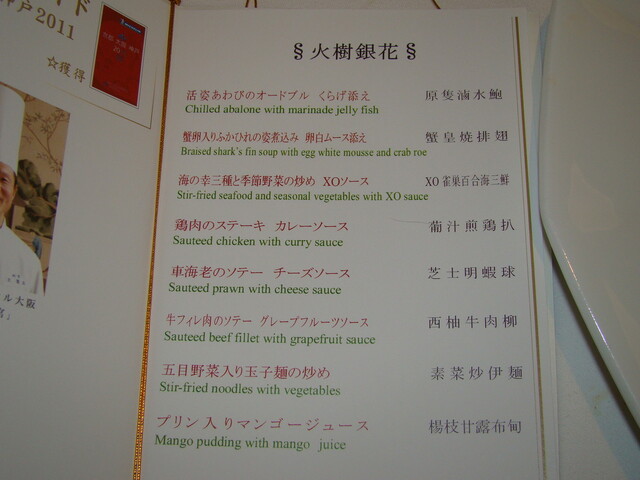 イド
神戸2011
☆獲得
ル大阪
宮」
§ 火樹銀花 §
活姿あわびのオードブル くらげ添え 原隻滷水鮑
Chilled abalone with marinade jelly fish
蟹卵入りふかひれの姿煮込み 卵白ムース添え 蟹皇焼排翅
Braised shark's fin soup with egg white mousse and crab roe
海の幸三種と季節野菜の炒め XOソース XO雀巣百合海三鮮
Stir-fried seafood and seasonal vegetables with XO sauce
鶏肉のステーキ カレーソース 葡汁煎鶏扒
Sauteed chicken with curry sauce
車海老のソテー チーズソース 芝士明蝦球
Sauteed prawn with cheese sauce
牛フィレ肉のソテー グレープフルーツソース 西柚牛肉柳
Sauteed beef fillet with grapefruit sauce
五目野菜入り玉子麺の炒め 素菜炒伊麺
Stir-fried noodles with vegetables
プリン入りマンゴージュース 楊枝甘露布甸
Mango pudding with mango juice